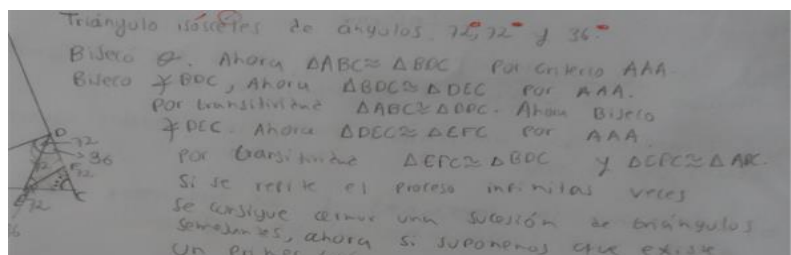 Triángulo isósceles de ángulos 72, 72 y 36
Biseco θ. Ahora △ABC≈ △BDC por criterio AAA.
Biseco ∢ BDC, Ahora △BDC≈ △DEC por AAA.
Por transitividad △ABC≈ △DEC. Ahora Biseco
∢ DEC. Ahora △DEC≈ △EFC por AAA
D
72
36
por transitividad △EFC≈ △BDC y △EFC≈ △ABC.
72
C
Si se repite el proceso infinitas veces
72
se consigue una sucesión de triángulos
semejantes, ahora si suponemos que existe
un